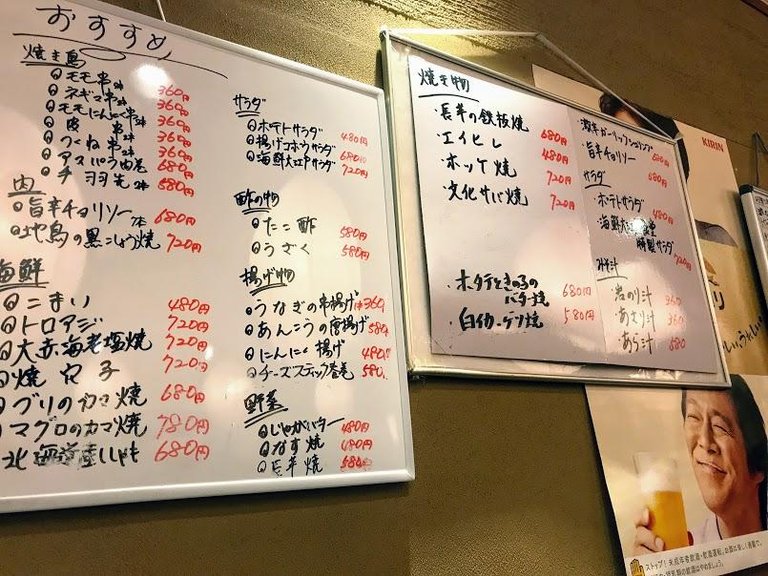 おすすめ
焼き鳥
モモ串 2本 360円
ネギマ串 2本 360円
モモにんにく串 2本 360円
皮串 2本 360円
つくね串 2本 360円
アスパラ肉巻 680円
手羽先 2本 580円
肉
旨辛チョリソー 2本 680円
地鳥の黒こしょう焼 720円
海鮮
こまい 480円
トロアジ 720円
大赤海老塩焼 720円
焼穴子 720円
ブリのカマ焼 680円
マグロのカマ焼 780円
北海道産ししゃも 680円
サラダ
ポテトサラダ 480円
揚げゴボウサラダ 680円
海鮮大江戸サラダ 720円
酢の物
たこ酢 580円
うざく 580円
揚げ物
うなぎの串揚げ 1本 360
あんこうの唐揚げ 580
にんにく揚げ 480円
チーズスティック春巻 580
野菜
じゃがバター 480円
なす焼 480円
長芋焼 580円
焼き物
・長芋の鉄板焼 680円
・エイヒレ 480円
・ホッケ焼 720円
・文化サバ焼 720円
・ホタテときのこの
バター焼 680円
・白イカゲソ焼 580円
・激辛ガーリックシュリンプ 680円
・旨辛チョリソー 680円
サラダ
・ポテトサラダ 480円
・海鮮大江戸
特製サラダ 720円
みそ汁
・岩のり汁 360
・あさり汁 360
・あら汁 580
KIRIN
うれしい
ストップ!未成年者飲酒・飲酒運転。お酒は楽しく適量で。